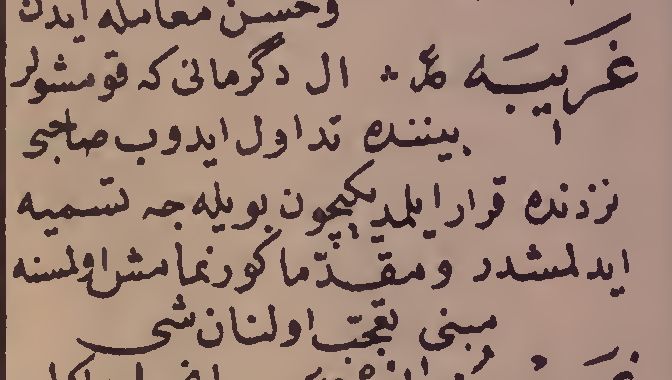 وحسن معامله ايدن
غريبه ال دگرمانى كه قومشولر
بيننده تداول ايدوب صاحبى
نزدنده قرار ايلمديكيچون بويله جه تسميه
ايدلمشدر ومقدّما كورنمامش اولمسنه
مبنى تعجّب اولنان شى